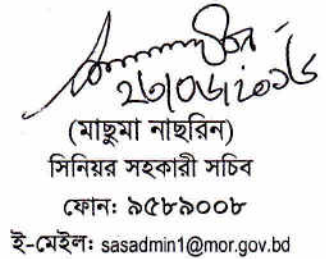 ২৩|০৬|২০১৬
(মাছুমা নাছরিন)
সিনিয়র সহকারী সচিব
ফোন: ৯৫৮৯০০৮
ই-মেইল: sasadmin1@mor.gov.bd